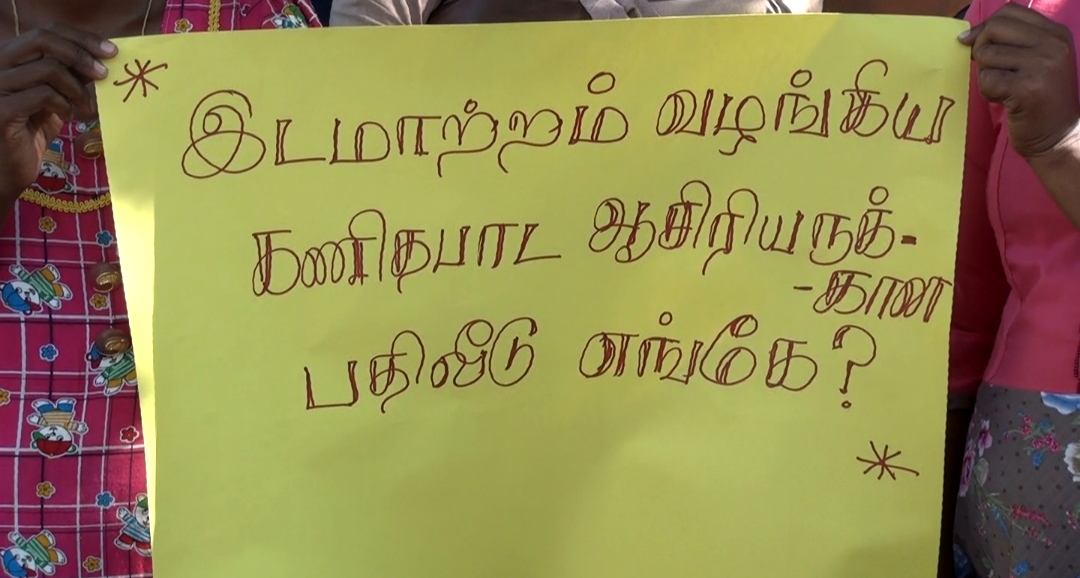 * இடமாற்றம் வழங்கிய
கணிதபாட ஆசிரியருக்-
-கான
பதிலீடு எங்கே?
*